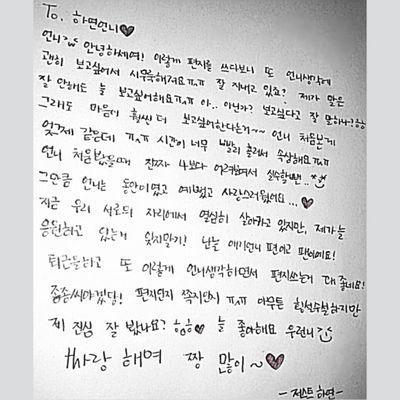 To. 하연언니♥
언니~ 안녕하세여! 이렇게 편지를 쓰다보니 또 언니생각에
괜히 보고싶어서 시무룩해져요ㅠㅠ 잘 지내고 있죠? 제가 맘은
잘 안해도 늘 보고싶어해요ㅠㅠ 아.. 아닌가? 보고싶다고 잘 말하나?ㅎㅎ
그래도 마음이 훨씬 더 보고싶어한다는거~~ 언니 처음본게
엊그제 같은데 ㅠㅠ 시간이 너무 빨리 흘러서 속상해요ㅠㅠ
언니 처음봤을때 진짜 나보다 어려보여서 실수할뻔..
그만큼 언니는 동안이였고 예뻤고 사랑스러웠어요...♥
지금 우리 서로의 자리에서 열심히 살아가고 있지만, 제가 늘
응원하고 있는거 잊지말기! 난늘 애기언니 편이고 팬이에요!
퇴근들하고 또 이렇게 언니생각하면서 편지쓰는게 대 좋네요!
종종 써야겠당! 편지인지 쪽지인지 ㅠㅠ 아무튼 횡설수설하지만
제 진심 잘 봤나요? 헝헝♥ 늘 좋아해요 우리언니
싸랑해여 짱 많이~♥
- 젠스트 하연 -